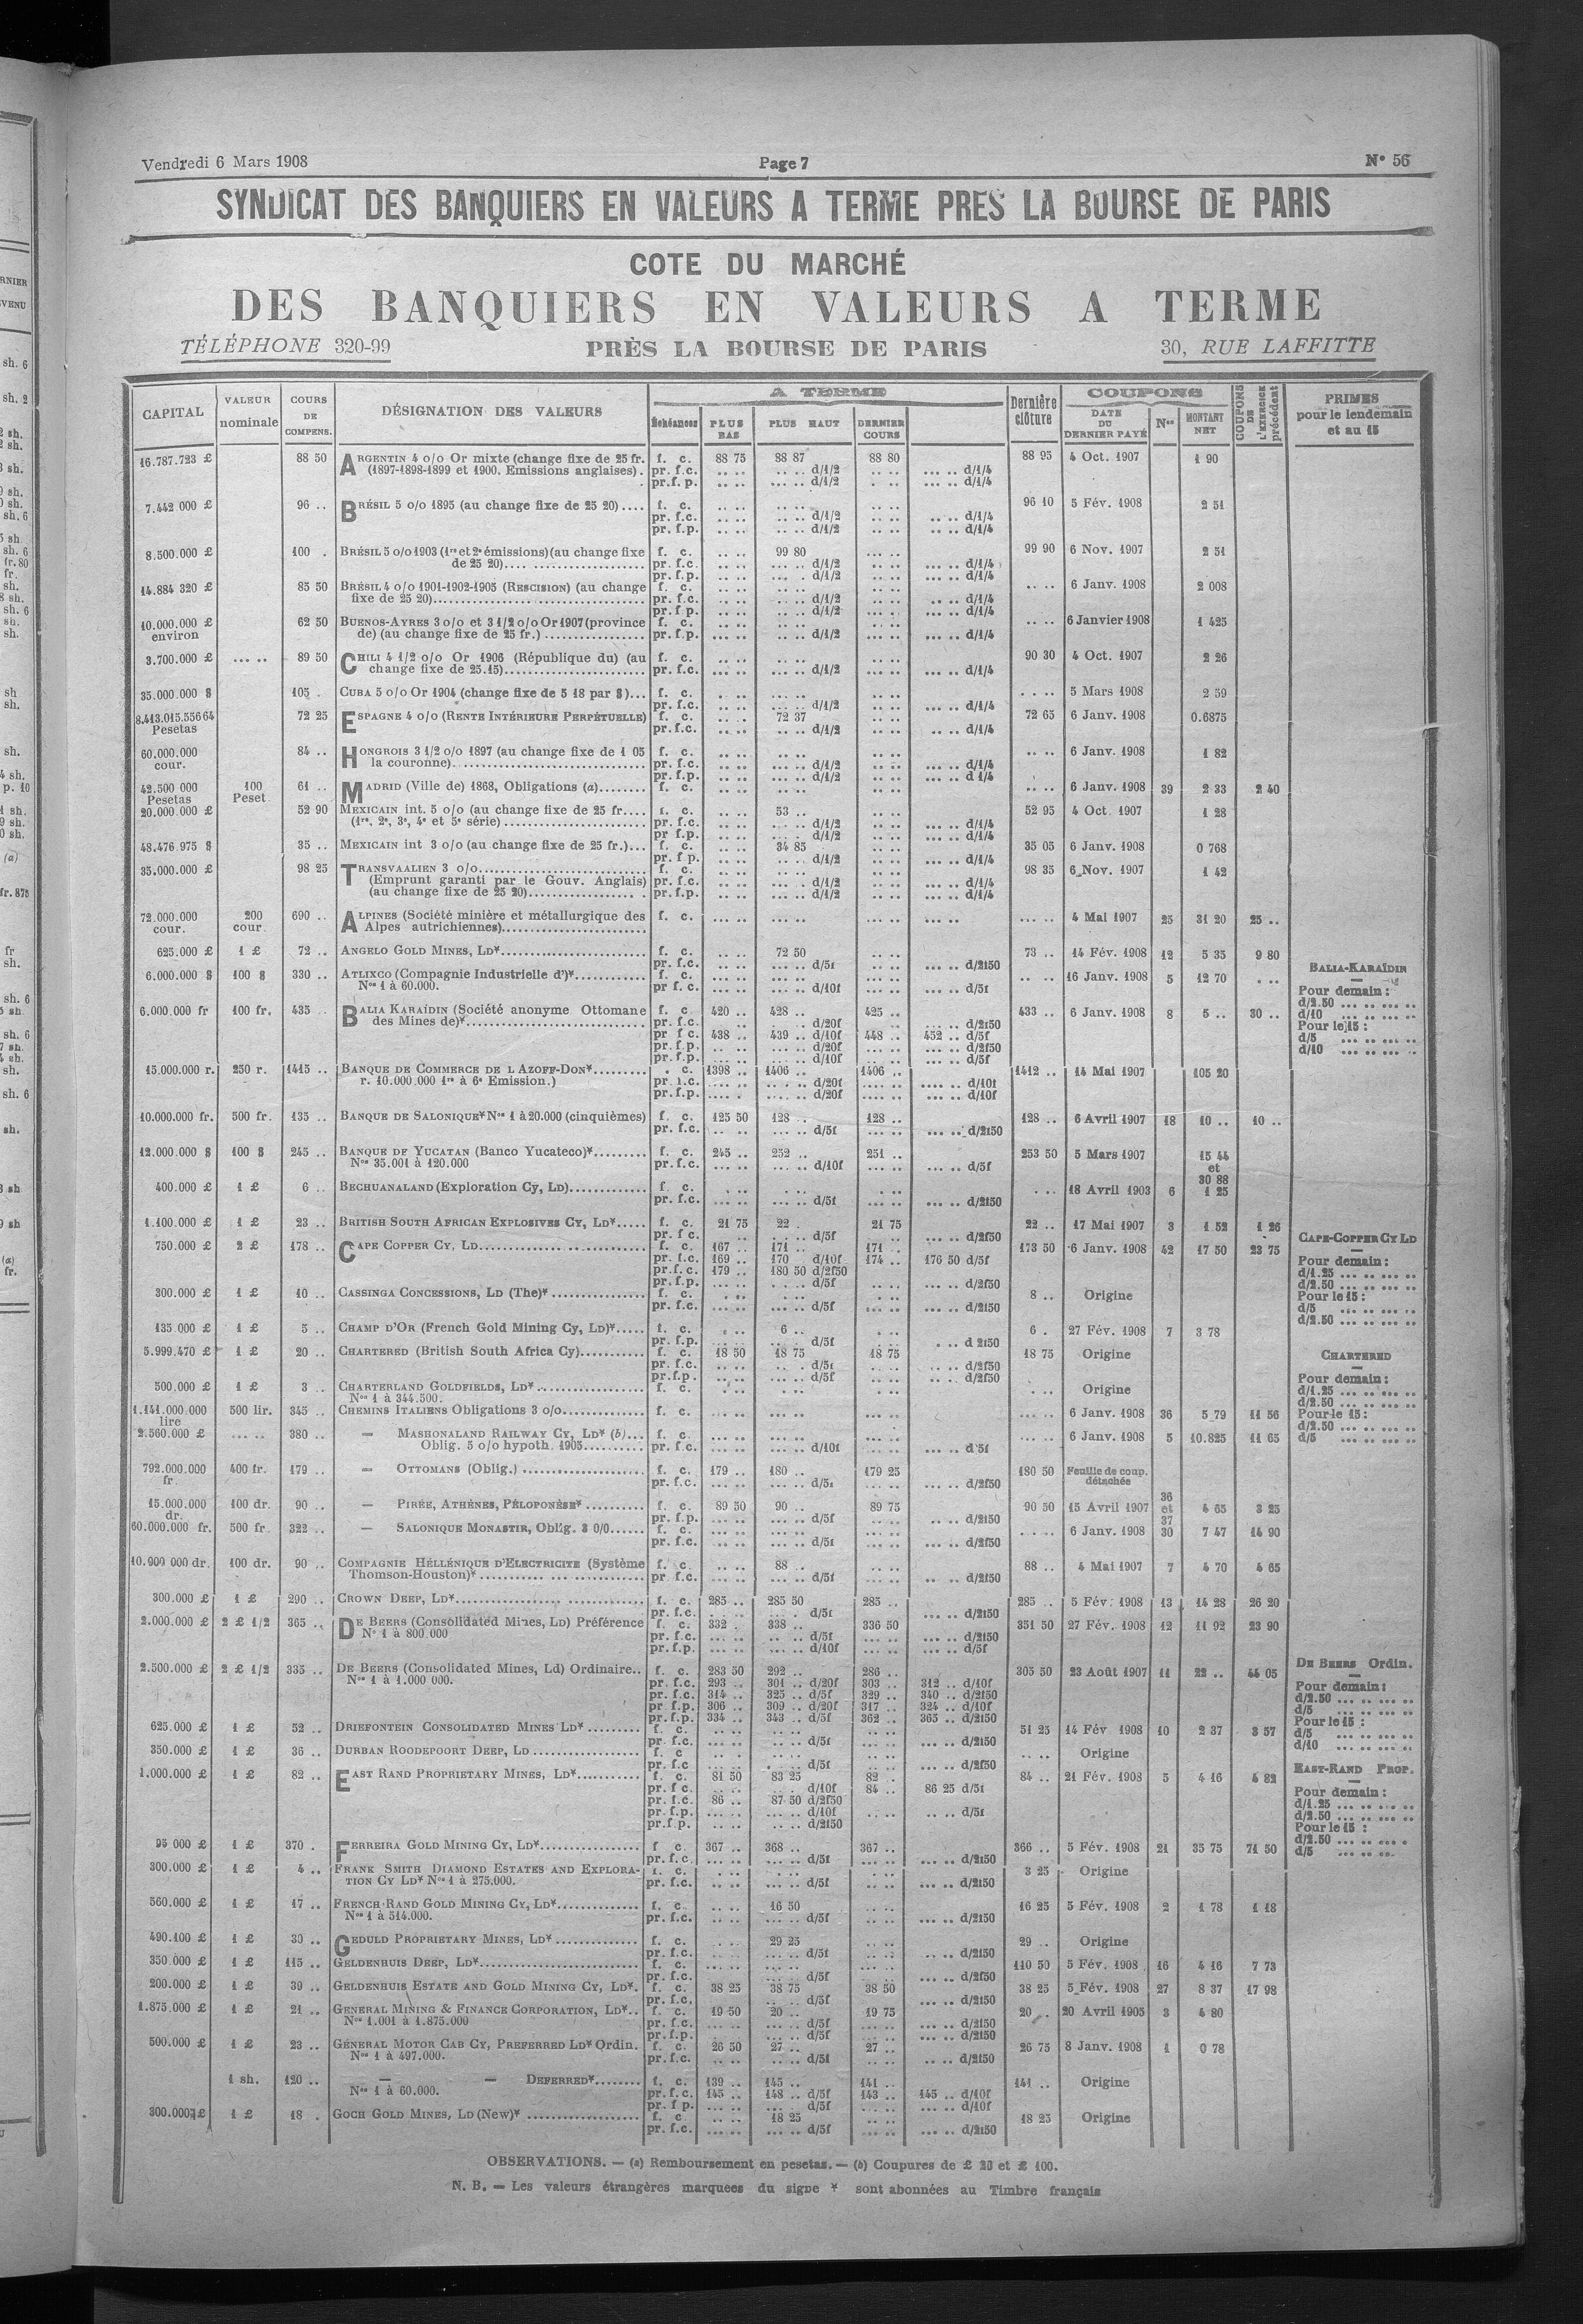 Vendredi 6 Mars 1908 Page 7 N° 56
SYNDICAT DES BANQUIERS EN VALEURS A TERME PRES LA BOURSE DE PARIS
COTE DU MARCHÉ
DES BANQUIERS EN VALEURS A TERME
TÉLÉPHONE 320-99 PRÈS LA BOURSE DE PARIS 30, RUE LAFFITTE
CAPITAL VALEUR nominale COURS DE COMPENS. DÉSIGNATION DES VALEURS A TERME Échéances PLUS BAS PLUS HAUT DERNIER COURS Dernière clôture COUPONS DATE DU DERNIER PAYÉ Nos MONTANT NET COUPONS DE L'EXERCICE précédent PRIMES pour le lendemain et au 15
16.787.723 £ 88 50 ARGENTIN 4 o/o Or mixte (change fixe de 25 fr. f. c. 88 75 88 87 88 80 88 95 4 Oct. 1907 1 90
(1897-1898-1899 et 1900. Emissions anglaises). pr. f.c. d/1/2 d/1/4
pr.f. p. d/1/2 d/1/4
7.442.000 £ 96 .. BRÉSIL 5 o/o 1895 (au change fixe de 25 20).... f. c. 96 10 5 Fév. 1908 2 51
pr. f.c. d/1/2 d/1/4
pr. f.p. d/1/2 d/1/4
8.500.000 £ 100 . BRÉSIL 5 o/o 1903 (1re et 2e émissions)(au change fixe f. c. 99 80 99 90 6 Nov. 1907 2 51
de 25 20) pr. f.c. d/1/2 d/1/4
pr. f.p. d/1/2 d/1/4
14.884 320 £ 85 50 BRÉSIL 4 o/o 1901-1902-1905 (RESCISION) (au change f. c. 6 Janv. 1908 2 008
fixe de 25 20) pr. f.c. d/1/2 d/1/4
pr. f.p. d/1/2 d/1/4
10.000.000 £ 62 50 BUENOS-AYRES 3 o/o et 3 1/2 o/o Or 1907 (province f. c. 6 Janvier 1908 1 425
environ de) (au change fixe de 25 fr.) pr. f.p. d/1/2 d/1/4
3.700.000 £ 89 50 CHILI 4 1/2 o/o Or 1906 (République du) (au f. c. 90 30 4 Oct. 1907 2 26
change fixe de 25.15) pr. f.c. d/1/2 d/1/4
35.000.000 $ 105 . CUBA 5 o/o Or 1904 (change fixe de 5 18 par $)... f. c. 5 Mars 1908 2 59
pr. f.c. d/1/2 d/1/4
8.413.015.556 64 72 25 ESPAGNE 4 o/o (RENTE INTÉRIEURE PERPÉTUELLE) f. c. 72 37 72 65 6 Janv. 1908 0.6875
Pesetas pr. f.c. d/1/2 d/1/4
60.000.000 84 .. HONGROIS 3 1/2 o/o 1897 (au change fixe de 1 05 f. c. 6 Janv. 1908 1 82
cour. la couronne) pr. f.c. d/1/2 d/1/4
pr. f.p. d/1/2 d 1/4
42.500 000 100 61 .. MADRID (Ville de) 1868, Obligations (a) f. c. 6 Janv. 1908 39 2 33 2 40
Pesetas Peset.
20.000.000 £ 52 90 MEXICAIN int. 5 o/o (au change fixe de 25 fr.... f. c. 53 .. 52 95 4 Oct. 1907 1 28
(1re, 2e, 3e, 4e et 5e série) pr. f.c. d/1/2 d/1/4
pr f.p. d/1/2 d/1/4
48.476 975 $ 35 .. MEXICAIN int 3 o/o (au change fixe de 25 fr.)... f. c. 34 85 35 05 6 Janv. 1908 0 768
pr. f p. d/1/2 d/1/4
35.000.000 £ 98 25 TRANSVAALIEN 3 o/o f. c. 98 35 6 Nov. 1907 1 42
(Emprunt garanti par le Gouv. Anglais) pr. f.c. d/1/2 d/1/4
(au change fixe de 25 20) pr. f.p. d/1/2 d/1/4
72.000.000 200 690 .. ALPINES (Société minière et métallurgique des f. c. 4 Mai 1907 25 31 20 25 ..
cour. cour. Alpes autrichiennes)
625.000 £ 1 £ 72 .. ANGELO GOLD MINES, LD* f. c. 72 50 73 .. 14 Fév. 1908 12 5 35 9 80
pr. f.c. d/5f d/2f50
6.000.000 $ 100 $ 330 .. ATLIXCO (Compagnie Industrielle d')* f. c. 16 Janv. 1908 5 12 70
Nos 1 à 60.000. pr f. c. d/10f d/5f
BALIA-KARAÏDIN
Pour demain :
d/2.50
d/10
Pour le 15 :
d/5
d/10
6.000.000 fr 100 fr. 435 .. BALIA KARAÏDIN (Société anonyme Ottomane f. c. 420 .. 428 .. 425 .. 433 .. 6 Janv. 1908 8 5 .. 30 ..
des Mines de)* pr. f.c. d/20f d/2f50
pr f c. 438 .. 439 .. d/10f 448 .. 452 .. d/5f
pr. f.p. d/20f d/2f50
pr. f.p. d/10f d/5f
15.000.000 r. 250 r. 1415 .. BANQUE DE COMMERCE DE L AZOFF-DON* . c. 1398 .. 1406 .. 1406 .. 1412 .. 14 Mai 1907 105 20
r. 10.000.000 1re à 6e Emission.) pr. f.c. d/20f d/10f
pr. f.p. d/20f d/10f
10.000.000 fr. 500 fr. 135 .. BANQUE DE SALONIQUE* Nos 1 à 20.000 (cinquièmes) f. c. 125 50 128 .. 128 .. 128 .. 6 Avril 1907 18 10 .. 10 ..
pr. f.c. d/5f d/2f50
12.000.000 $ 100 $ 245 .. BANQUE DE YUCATAN (Banco Yucateco)* f. c. 245 .. 252 .. 251 .. 253 50 5 Mars 1907 15 44
Nos 35.001 à 120.000 pr. f.c. d/10f d/5f et
30 88
400.000 £ 1 £ 6 .. BECHUANALAND (Exploration Cy, LD) f. c. 18 Avril 1903 6 1 25
pr. f.c. d/5f d/2f50
1.100.000 £ 1 £ 23 .. BRITISH SOUTH AFRICAN EXPLOSIVES CY, LD* f. c. 21 75 22 . 21 75 22 .. 17 Mai 1907 3 1 52 1 26
pr. f c. d/5f d/2f50
750.000 £ 2 £ 178 .. CAPE COPPER CY, LD f. c. 167 .. 171 .. 171 .. 173 50 6 Janv. 1908 42 17 50 23 75
pr. f.c. 169 .. 170 d/10f 174 .. 176 50 d/5f
pr. f. c. 179 .. 180 50 d/2f50
pr. f.p. d/5f d/2f50
CAPE-COPPER CY LD
Pour demain :
d/1.25
d/2.50
Pour le 15 :
d/5
d/2.50
300.000 £ 1 £ 10 .. CASSINGA CONCESSIONS, LD (The)* f. c. 8 .. Origine
pr. f.c. d/5f d/2f50
135 000 £ 1 £ 5 .. CHAMP D'OR (French Gold Mining Cy, LD)* f. c. 6 .. 6 . 27 Fév. 1908 7 3 78
pr. f.p. d/5f d 2f50
5.999.470 £ 1 £ 20 .. CHARTERED (British South Africa Cy) f. c. 18 50 18 75 18 75 18 75 Origine
pr. f.c. d/5f d/2f50
pr.f.p. d/5f d/2f50
CHARTERED
Pour demain :
d/1.25
d/2.50
Pour le 15 :
d/2.50
d/5
500.000 £ 1 £ 3 .. CHARTERLAND GOLDFIELDS, LD* f. c. Origine
Nos 1 à 344.500.
1.141.000.000 500 lir. 345 .. CHEMINS ITALIENS Obligations 3 o/o f. c. 6 Janv. 1908 36 5 79 11 56
lire
2.560.000 £ 380 .. — MASHONALAND RAILWAY CY, LD* (b)... f. c. 6 Janv. 1908 5 10.825 11 65
Oblig. 5 o/o hypoth. 1905 pr. f.c. d/10f d 5f
792.000.000 400 fr. 179 .. — OTTOMANS (Oblig.) f. c. 179 .. 180 .. 179 25 180 50 Feuille de coup.
fr. pr. f.c. d/5f d/2f50 détachée
15.000.000 100 dr. 90 .. — PIRÉE, ATHÈNES, PÉLOPONÈSE* f. c. 89 50 90 .. 89 75 90 50 15 Avril 1907 36 et 37 4 65 3 25
dr. pr. f.p. d/5f d/2f50
60.000.000 fr. 500 fr. 322 .. — SALONIQUE MONASTIR, Oblig. 3 0/0 f. c. 6 Janv. 1908 30 7 47 14 90
pr. f.c. d/5f d/2f50
10.900 000 dr. 100 dr. 90 .. COMPAGNIE HÉLLÉNIQUE D'ELECTRICITE (Système f. c. 88 .. 88 .. 4 Mai 1907 7 4 70 4 65
Thomson-Houston)* pr. f.c. d/5f d/2f50
300.000 £ 1 £ 290 .. CROWN DEEP, LD* f. c. 285 .. 285 50 285 .. 285 .. 5 Fév. 1908 13 14 28 26 20
pr. f.c. d/5f d/2f50
2.000.000 £ 2 £ 1/2 365 .. DE BEERS (Consolidated Mines, LD) Préférence f. c. 332 . 338 .. 336 50 351 50 27 Fév. 1908 12 11 92 23 90
N° 1 à 800.000 pr. f.c. d/5f d/2f50
pr. f.p. d/10f d/5f
2.500.000 £ 2 £ 1/2 335 .. DE BEERS (Consolidated Mines, Ld) Ordinaire.. f. c. 283 50 292 .. 286 .. 305 50 23 Août 1907 11 22 .. 44 05
Nos 1 à 1.000 000. pr. f.c. 293 .. 301 .. d/20f 303 .. 312 .. d/10f
pr. f.c. 314 .. 325 .. d/5f 329 .. 340 .. d/2f50
pr f.p. 306 .. 309 .. d/20f 317 .. 324 .. d/10f
pr. f.p. 334 .. 343 .. d/5f 362 .. 365 .. d/2f50
DE BEERS Ordin.
Pour demain :
d/2.50
d/5
Pour le 15 :
d/5
d/10
625.000 £ 1 £ 52 .. DRIEFONTEIN CONSOLIDATED MINES LD* f. c. 51 25 14 Fév 1908 10 2 37 3 57
pr. f.c. d/5f d/2f50
350.000 £ 1 £ 36 .. DURBAN ROODEPOORT DEEP, LD f. c Origine
pr. f.c d/5f d/2f50
1.000.000 £ 1 £ 82 .. EAST RAND PROPRIETARY MINES, LD* f. c. 81 50 83 25 82 . 84 .. 21 Fév. 1908 5 4 16 4 82
pr. f c. d/10f 84 .. 86 25 d/5f
pr. f.c. 86 .. 87 50 d/2f50
pr. f.p. d/10f d/5f
pr f.p. d/2f50
EAST-RAND PROP.
Pour demain :
d/1.25
d/2.50
Pour le 15 :
d/2.50
d/5
95 000 £ 1 £ 370 . FERREIRA GOLD MINING CY, LD* f c. 367 .. 368 .. 367 .. 366 .. 5 Fév. 1908 21 35 75 71 50
pr. f.c. d/5f d/2f50
300.000 £ 1 £ 4 .. FRANK SMITH DIAMOND ESTATES AND EXPLORA- f. c. 3 25 Origine
TION CY LD* Nos 1 à 275.000. pr. f.c. d/5f d/2f50
560.000 £ 1 £ 17 .. FRENCH-RAND GOLD MINING CY, LD* f. c. 16 50 16 25 5 Fév. 1908 2 1 78 1 18
Nos 1 à 514.000. pr. f.c. d/5f d/2f50
490.100 £ 1 £ 30 .. GEDULD PROPRIETARY MINES, LD* f. c. 29 25 29 .. Origine
pr. f.c. d/5f d/2f50
350 000 £ 1 £ 115 .. GELDENHUIS DEEP, LD* f. c. 110 50 5 Fév. 1908 16 4 16 7 73
pr. f.c. d/5f d/2f50
200.000 £ 1 £ 39 .. GELDENHUIS ESTATE AND GOLD MINING CY, LD*. f. c. 38 25 38 75 38 50 38 25 5 Fév. 1908 27 8 37 17 98
pr. f.c. d/5f d/2f50
1.875.000 £ 1 £ 21 .. GENERAL MINING & FINANCE CORPORATION, LD*.. f. c. 19 50 20 .. 19 75 20 .. 20 Avril 1905 3 4 80
Nos 1.001 à 1.875.000 pr. f.c. d/5f d/2f50
pr. f.p. d/5f d/2f50
500.000 £ 1 £ 23 .. GÉNERAL MOTOR CAB CY, PREFERRED LD* Ordin. f. c. 26 50 27 .. 27 .. 26 75 8 Janv. 1908 1 0 78
Nos 1 à 497.000. pr. f.c. d/5f d/2f50
1 sh. 120 .. — — DEFERRED* f. c. 139 .. 145 .. 141 .. 141 .. Origine
Nos 1 à 60.000. pr. f. c. 145 .. 148 .. d/5f 143 .. 145 .. d/10f
pr. f p. d/5f d/10f
300.000 £ 1 £ 18 . GOCH GOLD MINES, LD (New)* f. c. 18 25 18 25 Origine
pr. f.c. d/5f d/2f50
OBSERVATIONS. — (a) Remboursement en pesetas. — (b) Coupures de £ 20 et £ 100.
N. B. — Les valeurs étrangères marquées du signe * sont abonnées au Timbre français